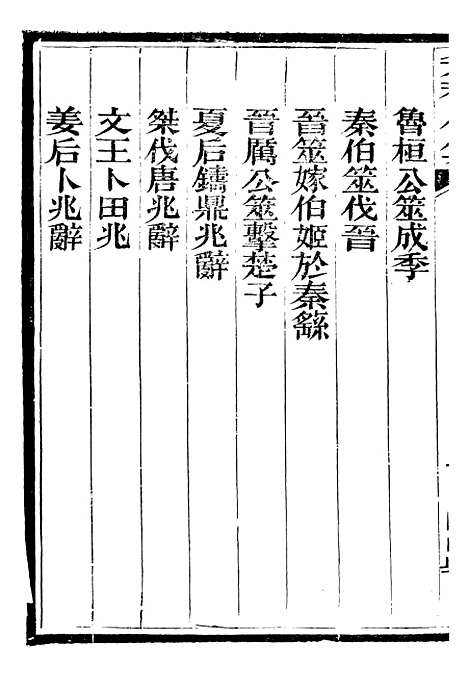 魯桓公筮成季
秦伯筮伐晉
晉筮嫁伯姬於秦繇
晉厲公筮擊楚子
夏后鑄鼎兆辭
桀伐唐兆辭
文王卜田兆
姜后卜兆辭